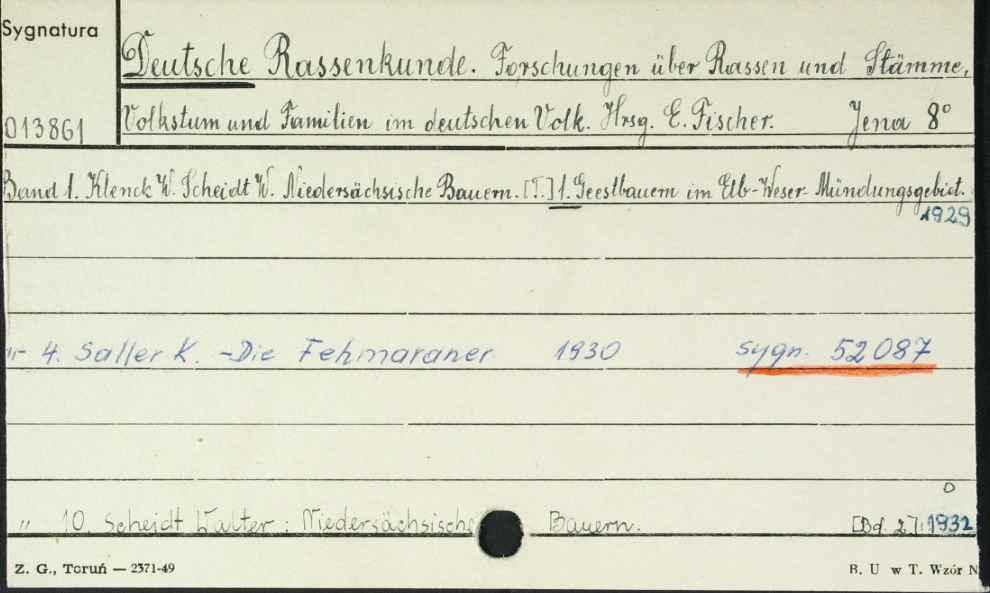 Sygnatura
Deutsche Rassenkunde. Forschungen über Rassen und Stämme,
013861
Volkstum und Familien im deutschen Volk. Hrsg. E. Fischer. Jena 8°
Band 1. Klenck W. Scheidt W. Niedersächsische Bauern. [T.] 1. Geestbauern im Elb-Weser-Mündungsgebiet.
1929
"- 4. Saller K. - Die Fehmaraner 1930 sygn. 52087
" 10. Scheidt Walter: Niedersächsische Bauern. [Bd. 2]. 1932
Z. G., Toruń — 2371-49
B. U w T. Wzór N